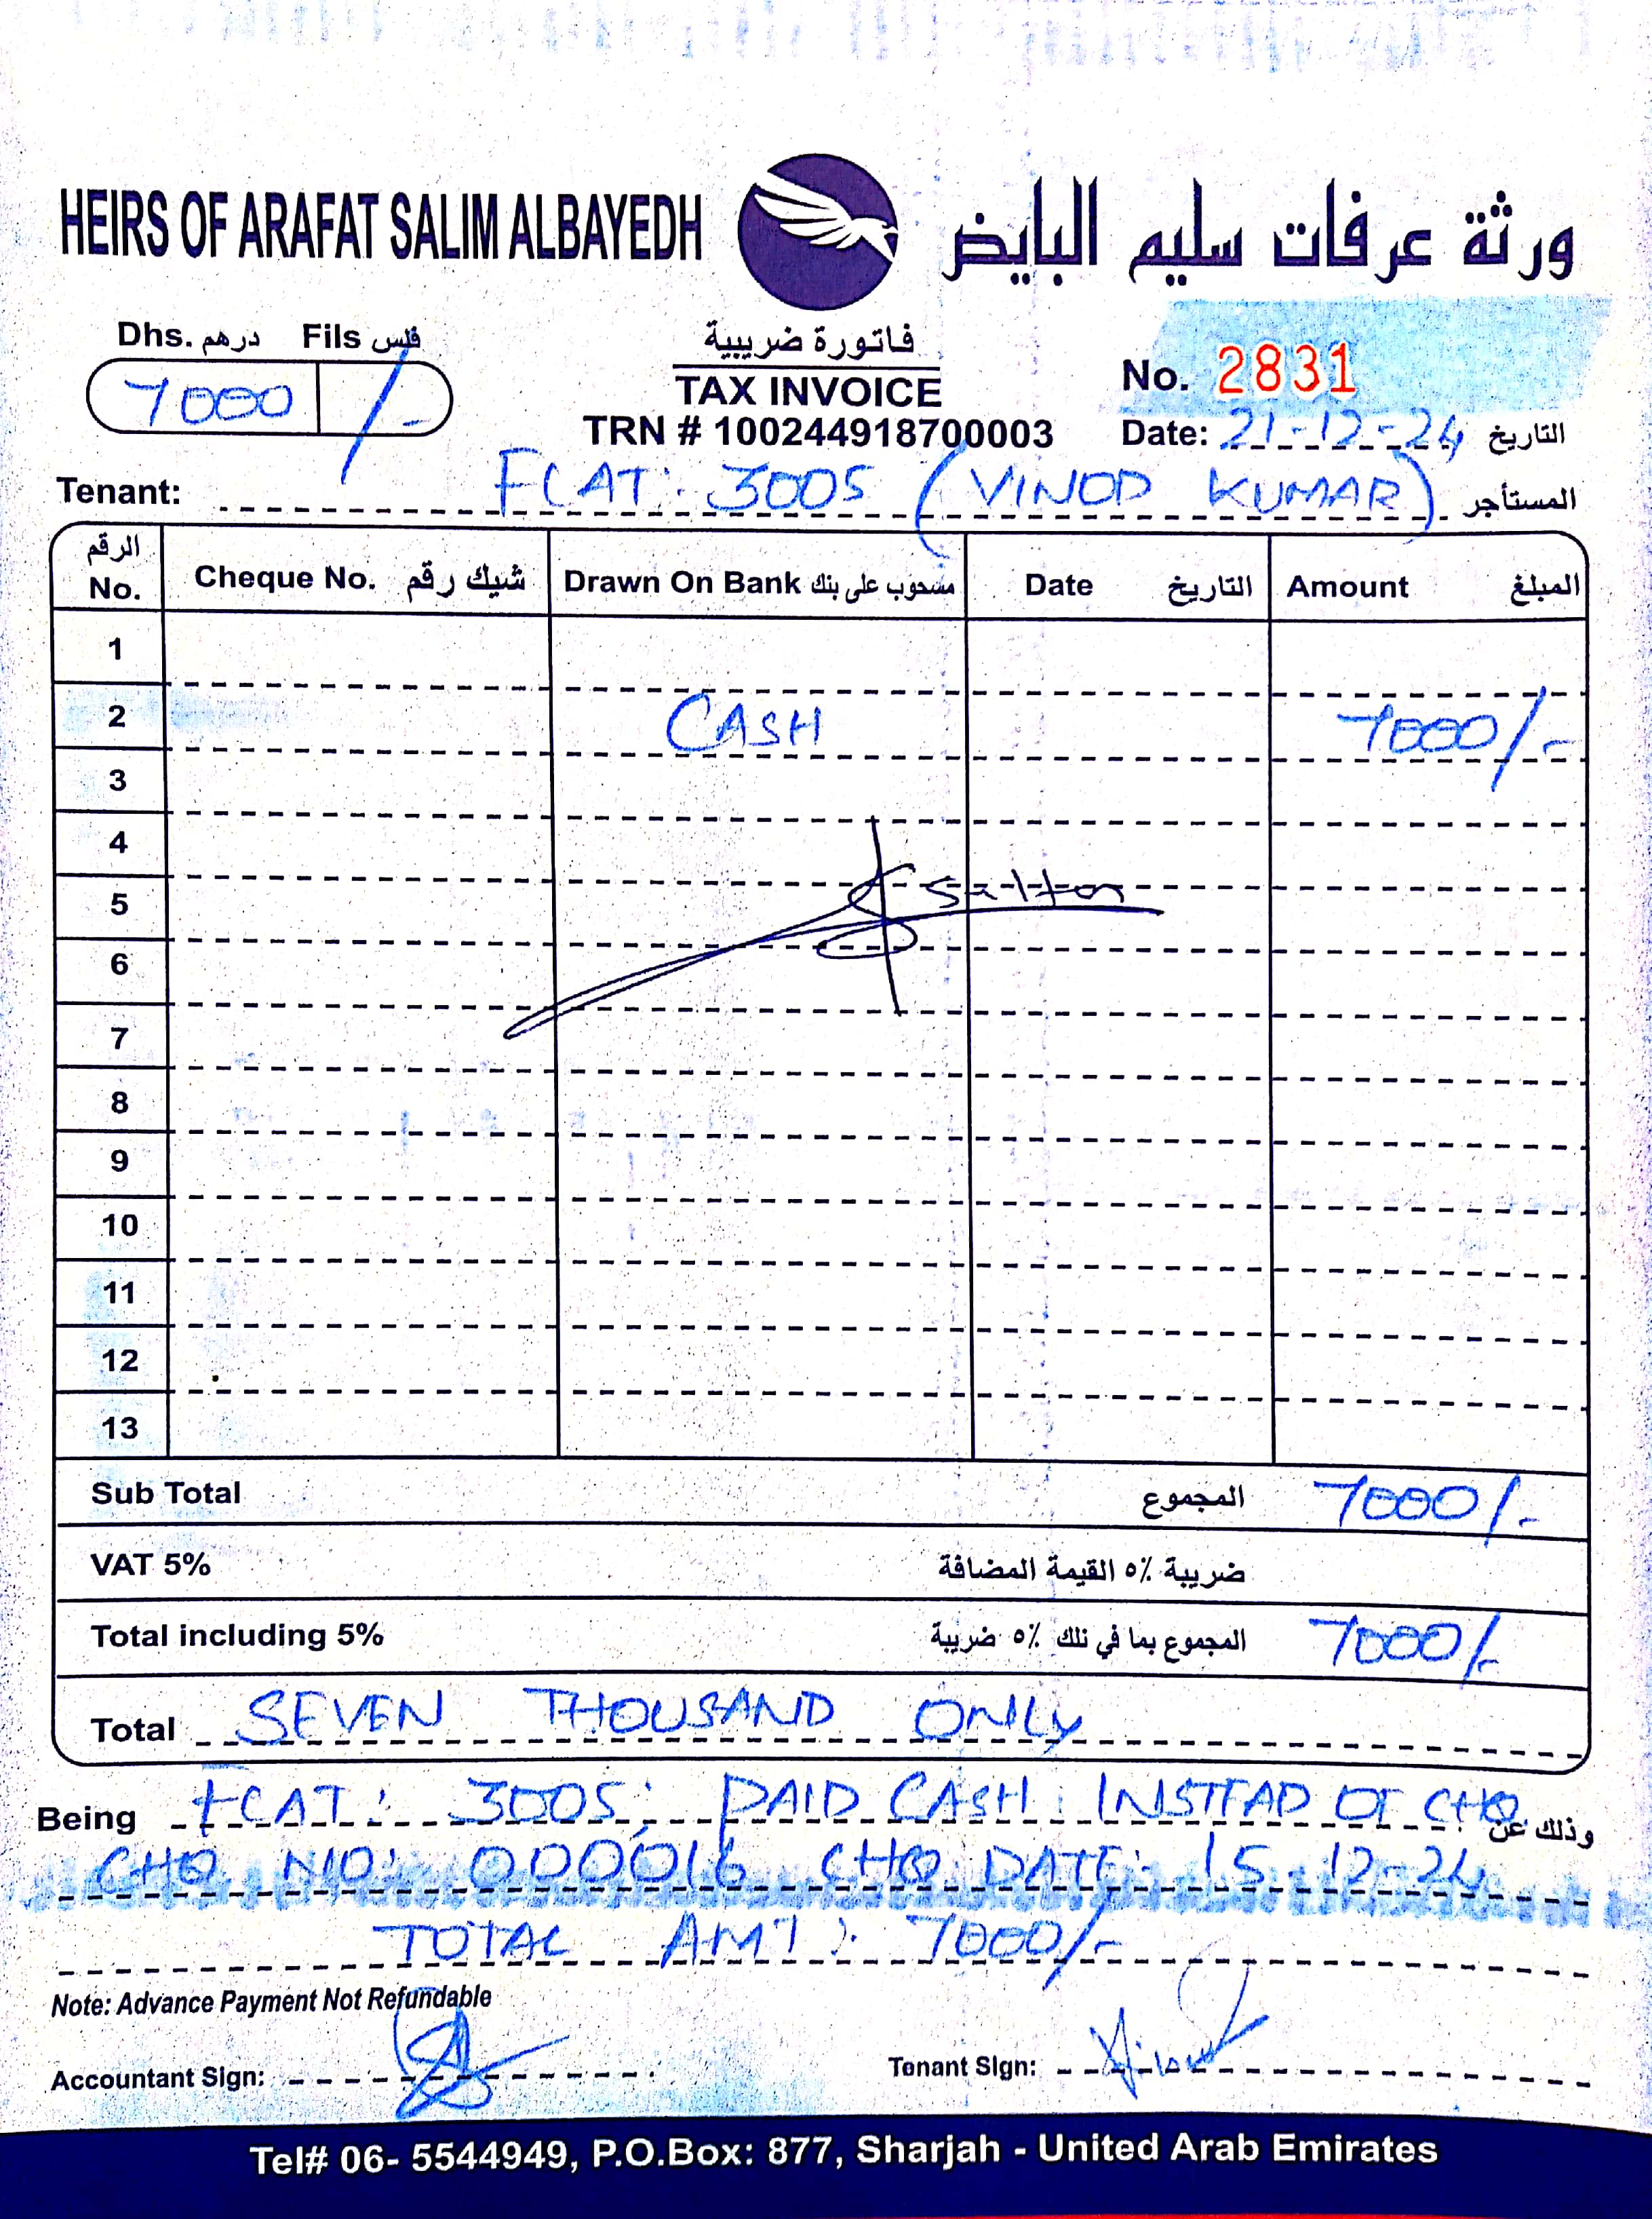 HEIRS OF ARAFAT SALIM ALBAYEDH ورثة عرفات سليم البايض
Dhs. درهم Fils فلس
7000 /-
فاتورة ضريبية
TAX INVOICE
TRN # 100244918700003
No. 2831
Date: 21-12-24 التاريخ
Tenant: FLAT: 3005 (VINOD KUMAR) المستأجر
الرقم No. Cheque No. شيك رقم Drawn On Bank مسحوب على بنك Date التاريخ Amount المبلغ
1
2 CASH 7000/-
3
4
5
6
7
8
9
10
11
12
13
Sub Total المجموع 7000/-
VAT 5% ضريبة ٥٪ القيمة المضافة
Total including 5% المجموع بما في ذلك ٥٪ ضريبة 7000/-
Total SEVEN THOUSAND ONLY
Being FLAT: 3005: PAID CASH INSTEAD OF CHQ وذلك عن
CHQ NO: 000016 CHQ DATE: 15-12-24
TOTAL AMT: 7000/-
Note: Advance Payment Not Refundable
Accountant Sign: Tenant Sign:
Tel# 06- 5544949, P.O.Box: 877, Sharjah - United Arab Emirates